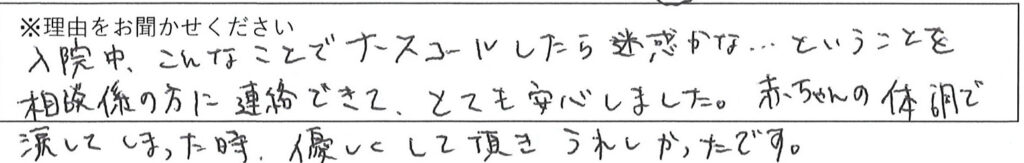 ※理由をお聞かせください
入院中、こんなことでナースコールしたら迷惑かな…ということを
相談係の方に連絡できて、とても安心しました。赤ちゃんの体調で
涙してしまった時、優しくして頂きうれしかったです。